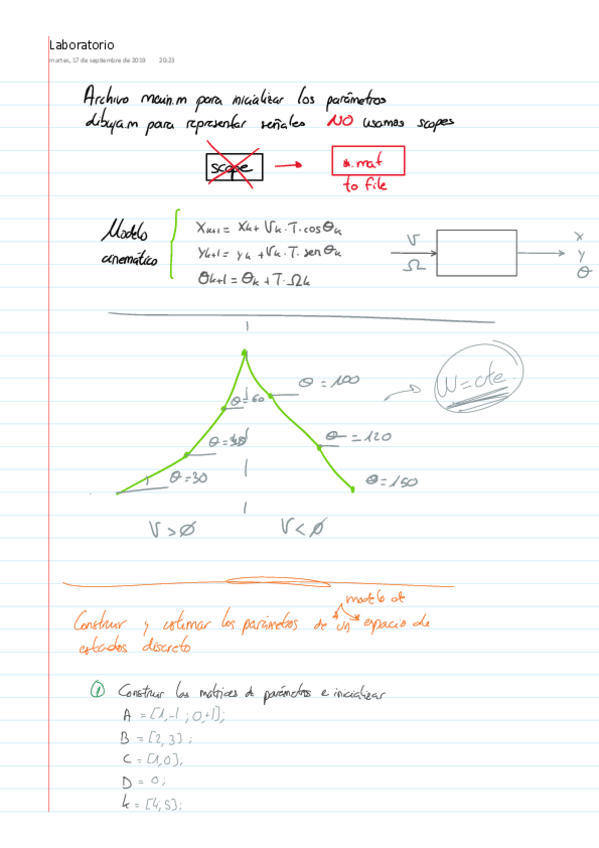 Laboratorio
martes, 17 de septiembre de 2019 20:23
Archivo main.m para inicializar los parámetros
dibuja.m para representar señales NO usamos scopes
scope → *.mat
to file
Modelo cinemático
Xk+1 = Xk + Vk · T · cosθk
Yk+1 = Yk + Vk · T · senθk
θk+1 = θk + T · Ωk
V
Ω
X
Y
θ
θ = 100
θ = 60
W = cte.
θ = 120
θ = 30
θ = 150
V > ∅
V < ∅
modelo de
Construir y estimar los parámetros de un espacio de
estados discreto
① Construir las matrices de parámetros e inicializar
A = [1,-1 ; 0,+1];
B = [2,3];
C = [1,0];
D = 0;
k = [4,5];